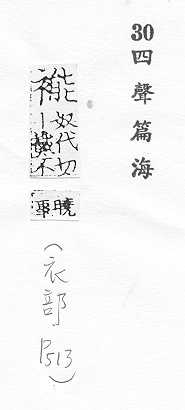 30 四聲篇海
褦 奴代切 丨襶不
曉亊
(衣部 P513)